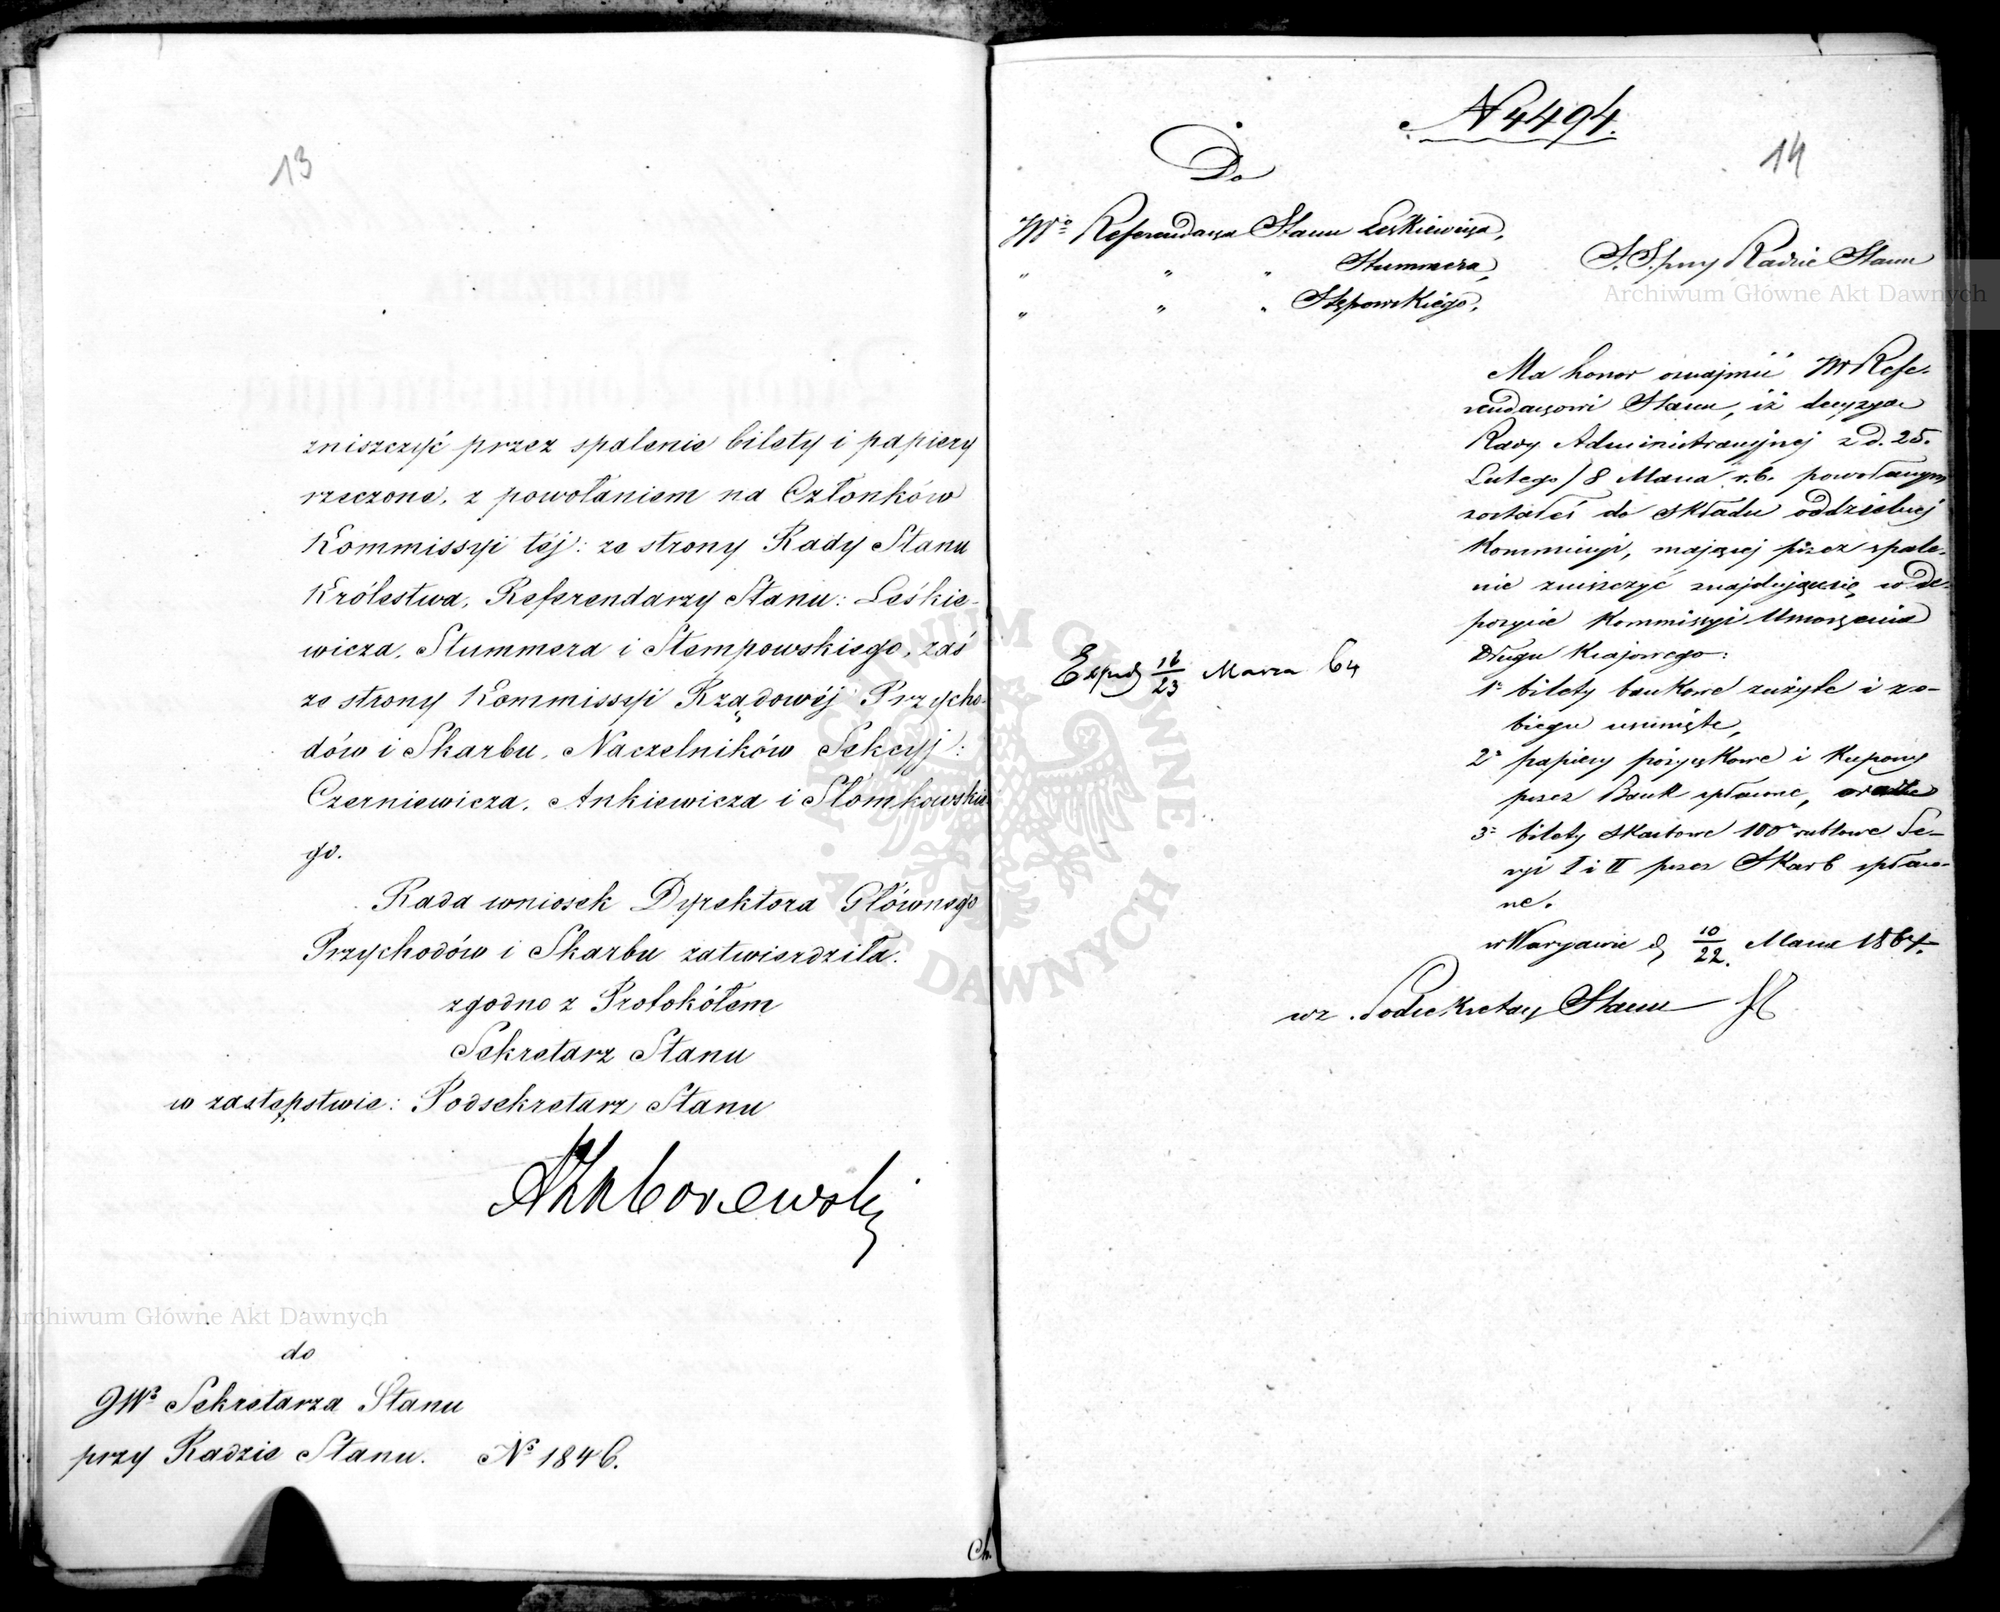 13
zniszczyć przez spalenie bilety i papiery
rzeczone, z powołaniem na Członków
Kommissyi téj: ze strony Rady Stanu
Królestwa, Referendarzy Stanu: Leśkie-
wicza, Stummera i Stempowskiego, zaś
ze strony Kommissyi Rządowéj Przycho-
dów i Skarbu, Naczelników Sekcyj:
Czerniewicza, Ankiewicza i Słomkowskie
go.
Rada wniosek Dyrektora Głównego
Przychodów i Skarbu zatwierdziła.
zgodno z Protokółem
Sekretarz Stanu
w zastępstwie: Podsekretarz Stanu
AZaborowski
do
JWo Sekretarza Stanu
przy Radzie Stanu. No 1846.
Ch.
N 4494.
14
Do
Wo Referendarza Stanu Leśkiewicza,
" " " Stummera,
" " " Stępowskiego,
S. S. przy Radzie Stanu
Ma honor oznajmić W Refe-
rendarzowi Stanu, iż decyzyą
Rady Administracyjnej z d. 25.
Lutego / 8 Marca r.b. powołanym
zostałeś do składu oddzielnej
Kommissyi, mającej przez spale-
nie zniszczyć znajdujące się w de-
pozycie Kommissyi Umorzenia
Długu Krajowego:
1o bilety bankowe zużyte i z o-
biegu usunięte,
2o papiery pożyczkowe i kupony
przez Bank spłacone,
3o bilety skarbowe 100 rublowe Se-
ryi I i II przez Skarb spłaco-
ne.
w Warszawie d 10/22. Marca 1864
wz. Podsekretarz Stanu
Exped 23 Marca 64
Archiwum Główne Akt Dawnych
Archiwum Główne Akt Dawnych
ARCHIWUM GŁÓWNE · AKT DAWNYCH ·